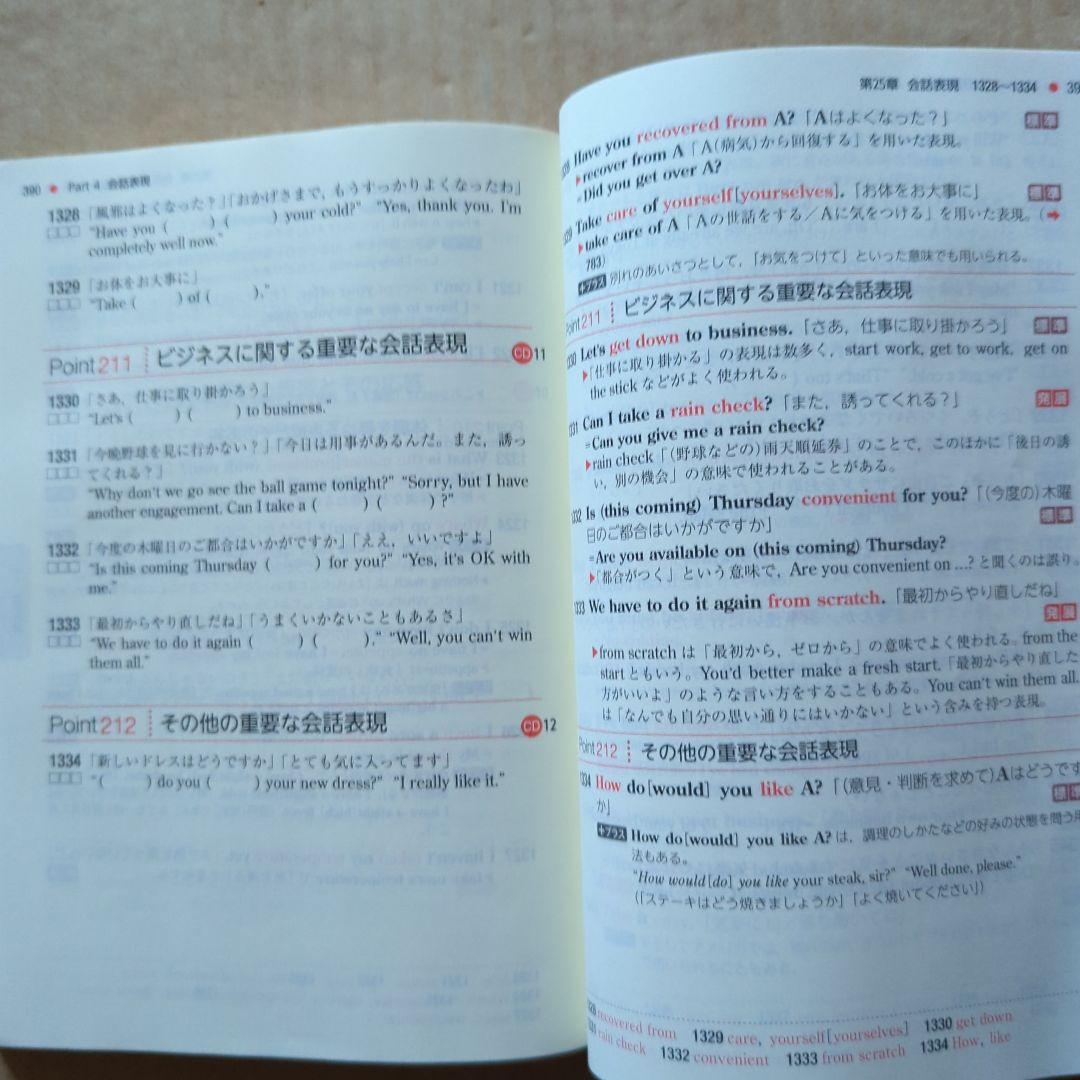 390 ● Part 4 会話表現
1328 「風邪はよくなった？」「おかげさまで，もうすっかりよくなったわ」
□□□ “Have you (　　) (　　) your cold?” “Yes, thank you. I'm
completely well now.”
1329 「お体をお大事に」
□□□ “Take (　　) of (　　).”
Point 211 ビジネスに関する重要な会話表現 CD 11
1330 「さあ，仕事に取り掛かろう」
□□□ “Let's (　　) (　　) to business.”
1331 「今晩野球を見に行かない？」「今日は用事があるんだ。また，誘っ
□□□ てくれる？」
“Why don't we go see the ball game tonight?” “Sorry, but I have
another engagement. Can I take a (　　) (　　)?”
1332 「今度の木曜日のご都合はいかがですか」「ええ，いいですよ」
□□□ “Is this coming Thursday (　　) for you?” “Yes, it's OK with
me.”
1333 「最初からやり直しだね」「うまくいかないこともあるさ」
□□□ “We have to do it again (　　) (　　).” “Well, you can't win
them all.”
Point 212 その他の重要な会話表現 CD 12
1334 「新しいドレスはどうですか」「とても気に入ってます」
□□□ “(　　) do you (　　) your new dress?” “I really like it.”
第25章 会話表現 1328〜1334 ● 39
Have you recovered from A? 「Aはよくなった？」 標準
▶recover from A「A(病気)から回復する」を用いた表現。
=Did you get over A?
Take care of yourself[yourselves]. 「お体をお大事に」 標準
▶take care of A「Aの世話をする／Aに気をつける」を用いた表現。(➡
783)
+プラス 別れのあいさつとして，「お気をつけて」といった意味でも用いられる。
Point 211 ビジネスに関する重要な会話表現
330 Let's get down to business. 「さあ，仕事に取り掛かろう」 標準
▶「仕事に取り掛かる」の表現は数多く，start work, get to work, get on
the stick などがよく使われる。
331 Can I take a rain check? 「また，誘ってくれる？」 発展
=Can you give me a rain check?
▶rain check「(野球などの)雨天順延券」のことで，このほかに「後日の誘
い，別の機会」の意味で使われることがある。
332 Is (this coming) Thursday convenient for you? 「(今度の)木曜
日のご都合はいかがですか」 標準
=Are you available on (this coming) Thursday?
▶「都合がつく」という意味で，Are you convenient on ...? と聞くのは誤り。
333 We have to do it again from scratch. 「最初からやり直しだね」
発展
▶from scratch は「最初から，ゼロから」の意味でよく使われる。from the
start ともいう。You'd better make a fresh start.「最初からやり直した
方がいいよ」のような言い方をすることもある。You can't win them all.
は「なんでも自分の思い通りにはいかない」という含みを持つ表現。
Point 212 その他の重要な会話表現
334 How do[would] you like A? 「(意見・判断を求めて)Aはどうです
か」 標準
+プラス How do[would] you like A? は，調理のしかたなどの好みの状態を問う用
法もある。
“How would[do] you like your steak, sir?” “Well done, please.”
(「ステーキはどう焼きましょうか」「よく焼いてください」)
328 recovered from 1329 care, yourself[yourselves] 1330 get down
331 rain check 1332 convenient 1333 from scratch 1334 How, like